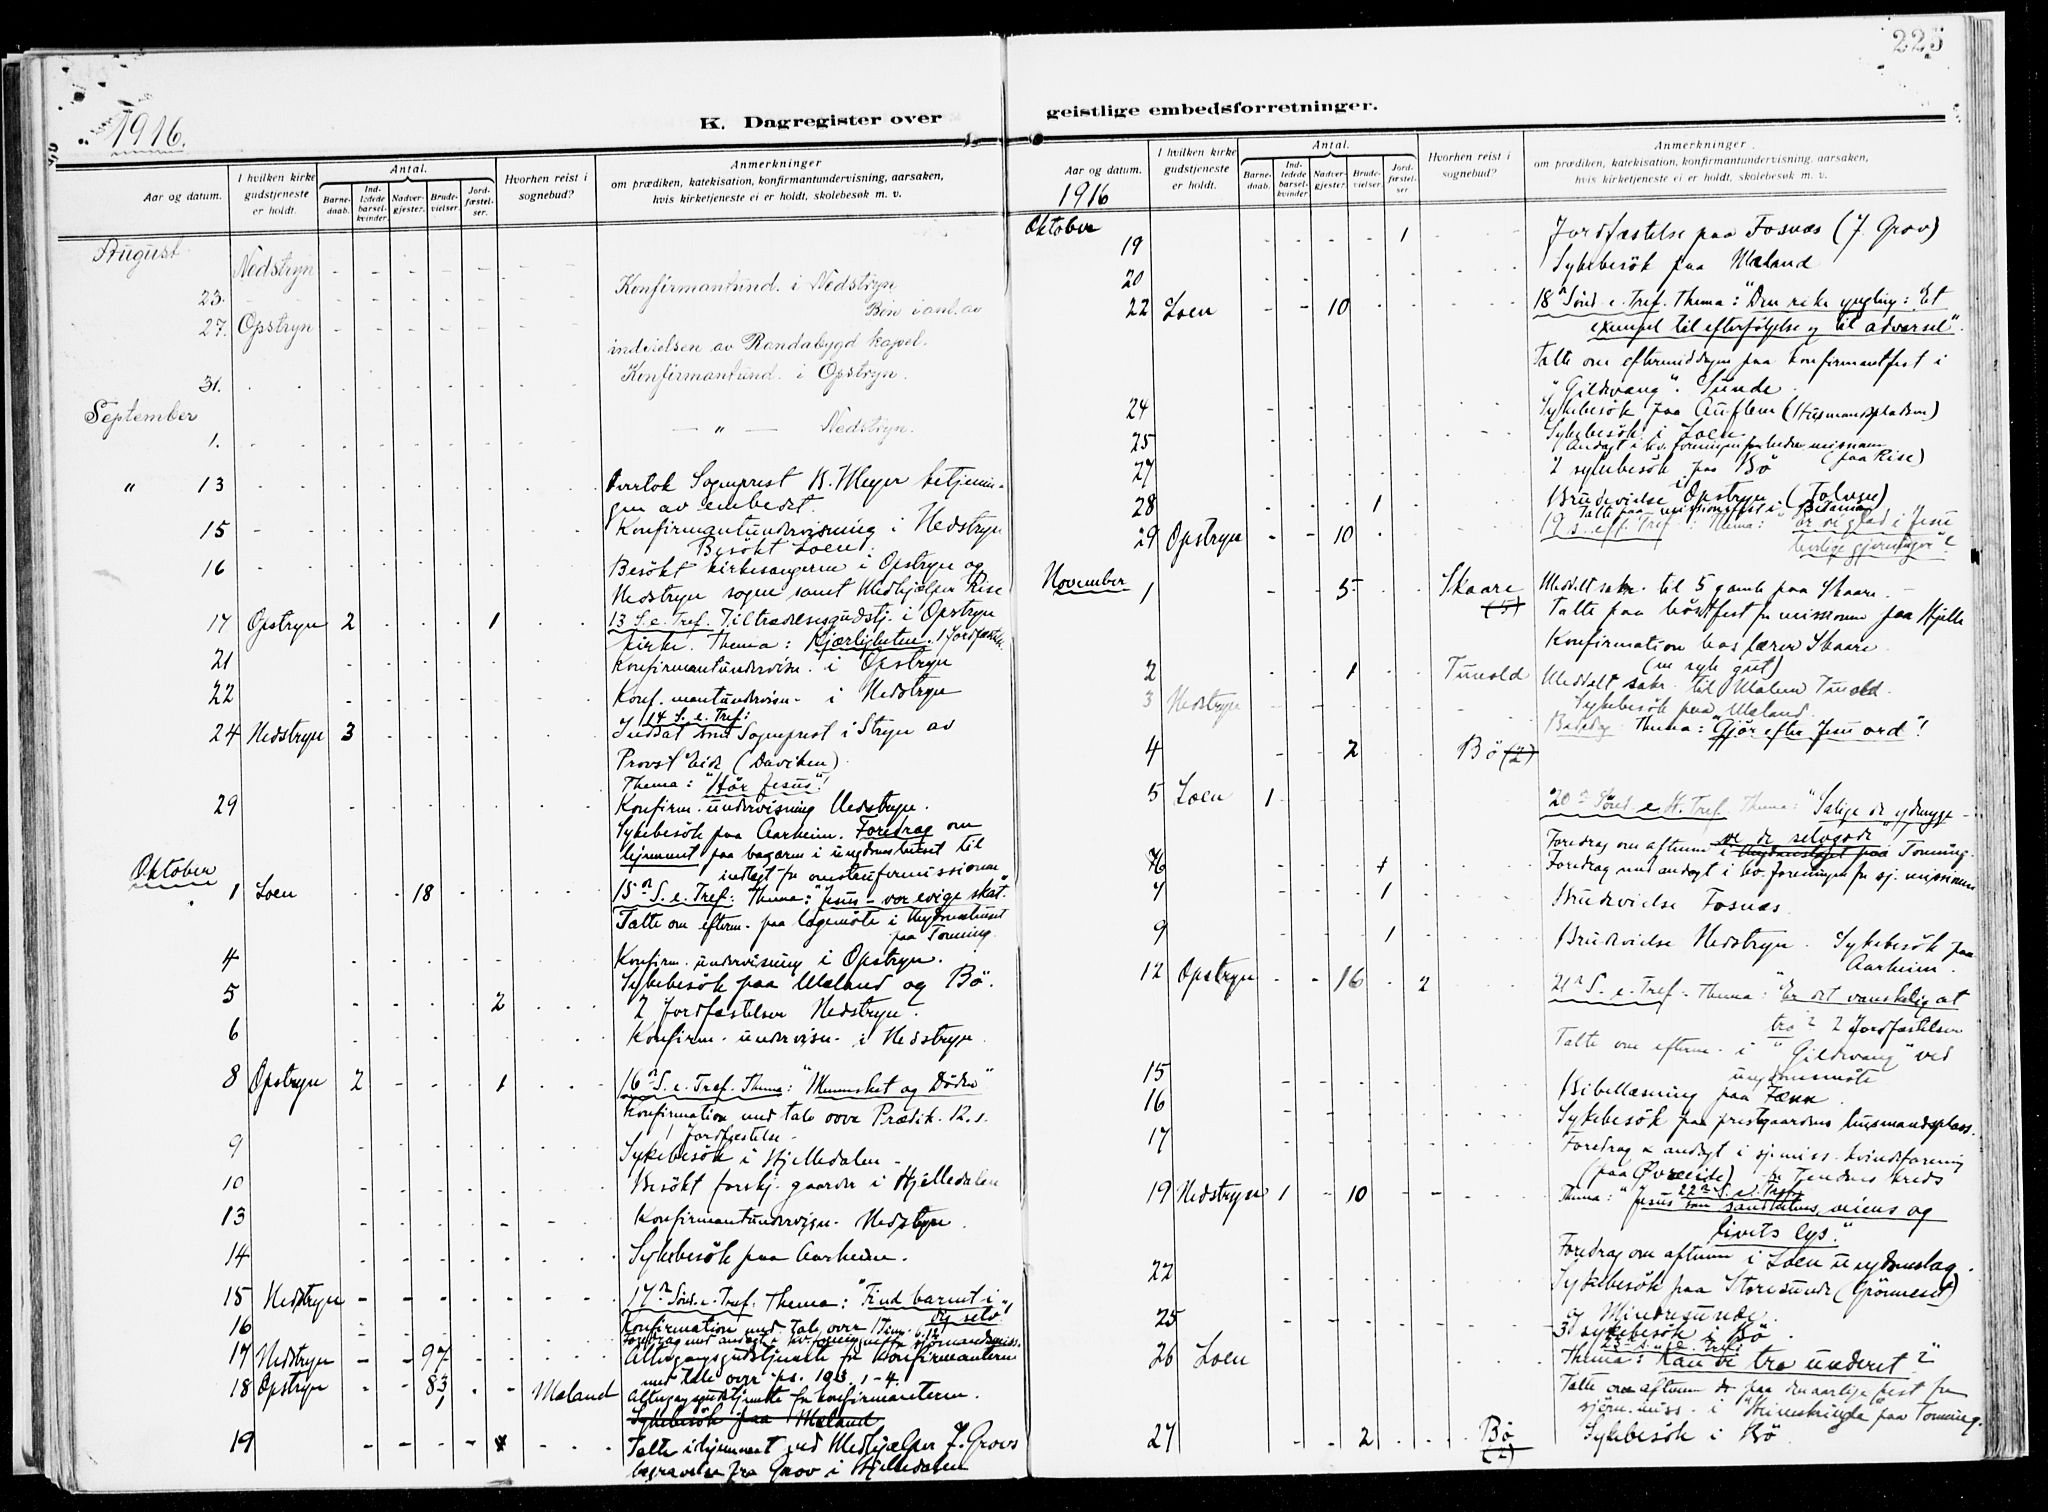 225
1916.
K. Dagregister over
Aar og datum.
I hvilken kirke gudstjeneste er holdt.
Antal.
Barne-daab.
Ind-ledede barsel-kvinder.
Nadver-gjester.
Brude-vielser.
Jord-fæstel-ser.
Hvorhen reist i sognebud?
Anmerkninger
om prædiken, katekisation, konfirmantundervisning, aarsaken,
hvis kirketjeneste ei er holdt, skolebesøk m. v.
August
23. Nedstryn - - - - - - Konfirmantund. i Nedstryn
27. Opstryn - - - - - - Bön i anl. av
indvielsen av Randabygd kapel.
31. Konfirmantund. i Opstryn.
September
1. — „ — Nedstryn.
„ 13 Overtok Sogneprest B. Meyer betjenin-
gen av embedet.
15 Konfirmantundervisning i Nedstryn
Besökt Loen.
16 Besökt kirkesangerne i Opstryn og
Nedstryn sogne samt Medhjælper Rise
17 Opstryn 2 1 13 S. e. Tref. Tiltrædelsesgudstj. i Opstryn
kirke. Thema: Kjærligheten. 1 Jordfæstelse
21 Konfirmantundervisn. i Opstryn
22 Konf.mantundervisn. i Nedstryn
24 Nedstryn 3 14 S. e. Tref:
Indsat som Sogneprest i Stryn av
Provst Eide (Daviken)
Thema: "Hör Jesus"!
29 Konfirm. undervisning Nedstryn.
Sykebesök paa Aarheim. Foredrag om
hjemmet paa bazaren i ungdomshuset til
indtægt for
Oktober
1 Loen 18 15n S. e. Tref: Thema: "Jesus – vor evige skat."
Talte om efterm. paa logemöte i Ungdomshuset
paa Tonning.
4 Konfirm. undervisning i Opstryn.
5 2 Sykebesök paa Mæland og Bö.
2 Jordfæstelser Nedstryn.
6 Konfirm. undervisn. i Nedstryn.
8 Opstryn 2 1 16n S. e. Tref. Thema: "Mennesket og Döden"
Konfirmation med tale over Prædik. 12.1.
1 Jordfæstelse.
9 Sykebesök i Hjelledalen
10 Besökt forskj. gaarder i Hjelledalen
13 Konfirmantundervisn. Nedstryn.
14 Sykebesök paa Aarheim.
15 Nedstryn 17n Sönd. e. Tref. Thema: "Find barnet i
dig selv"!
Konfirmation med tale over 1 Tim. 6.12
16 Foredrag med andagt i kv.foreningen for sjömandsmiss.
17 Nedstryn 97 Altergangsgudstjeneste for konfirmanterne
med tale over ps. 103. 1-4.
18 Opstryn 83 Mæland Altergangsgudstjeneste for konfirmanterne.
Sykebesök paa Mæland
19 Talte i hjemmet ved Medhjælper J. Grovs
begravelse fra Grov i Hjelledalen
geistlige embedsforretninger.
Aar og datum.
I hvilken kirke gudstjeneste er holdt.
Antal.
Barne-daab.
Ind-ledede barsel-kvinder.
Nadver-gjester.
Brude-vielser.
Jord-fæstel-ser.
Hvorhen reist i sognebud?
Anmerkninger
om prædiken, katekisation, konfirmantundervisning, aarsaken,
hvis kirketjeneste ei er holdt, skolebesøk m. v.
1916
Oktober
19 1 Jordfæstelse paa Fosnæs (J. Grov)
20 Sykebesök paa Mæland
22 Loen 10 18n Sönd. e. Tref. Thema: "Den rike yngling: Et
exempel til efterfölgelse og til advarsel".
Talte om eftermiddagen paa konfirmantfest i
"Gildevang". Sunde.
24 Sykebesök paa Auflem (Husmandspladsen)
25 Sykebesök i Loen.
Andagt i kv.foreningen for hedn.missionen
(paa Rise)
27 2 sykebesök paa Bö
28 1 Brudevielse i Opstryn. (Tolven)
Talte paa missionsfest i
29 Opstryn 10 19 S. eft. Tref.: Thema: "Er vi glad i Jesu
herlige gjerninger"?
November
1 5 Skaare (5) Meddelt sakr. til 5 gamle paa Skaare.
Talte paa höstfest for missionen paa Hjelle
Konfirmation hos lærer Skaare
(en syk gut)
2 1 Tunold Meddelt sakr. til Malene Tunold.
Sykebesök paa Mæland.
3 Nedstryn Bededag. Thema: "Gjör efter Jesu ord"!
4 2 Bö (2)
5 Loen 1 20n Sönd. e. H. Tref. Thema: "Salige de ydmyge –
ve de selvgode"
Foredrag om aftenen i Ungdomslaget paa Tonning.
6 Foredrag med andagt i kv.foreningen for sj. missionen
7 1 Brudevielse Fosnæs.
9 1 Brudevielse Nedstryn. Sykebesök paa
Aarheim.
12 Opstryn 16 2 21n S. e. Tref. Thema: "Er det vanskelig at
tro"? 2 Jordfæstelser
Talte om efterm. i "Gildevang" ved
ungdomsmöte
15 Bibellæsning paa Tænn.
16 Sykebesök paa prestgaardens husmandsplass.
17 Foredrag & andagt i sj.miss. kvindeforening
(paa Övreeide) for Tenden kreds
19 Nedstryn 1 10 22n S. e. Tref.
Thema: "Jesus som sandhetens, veiens og
livets lys."
Foredrag om aftenen i Loen ungdomslag.
22 Sykebesök paa Storesunde (Grönneset)
og Mindresunde.
25 3 sykebesök i Bö
26 Loen 23 S. e. Tref:
Thema: "Kan vi tro underet?"
Talte om aftenen der paa den aarlige fest for
sjöm.miss. i "Heimskringla" paa Tonning.
27 2 Bö (2) Sykebesök i Bö